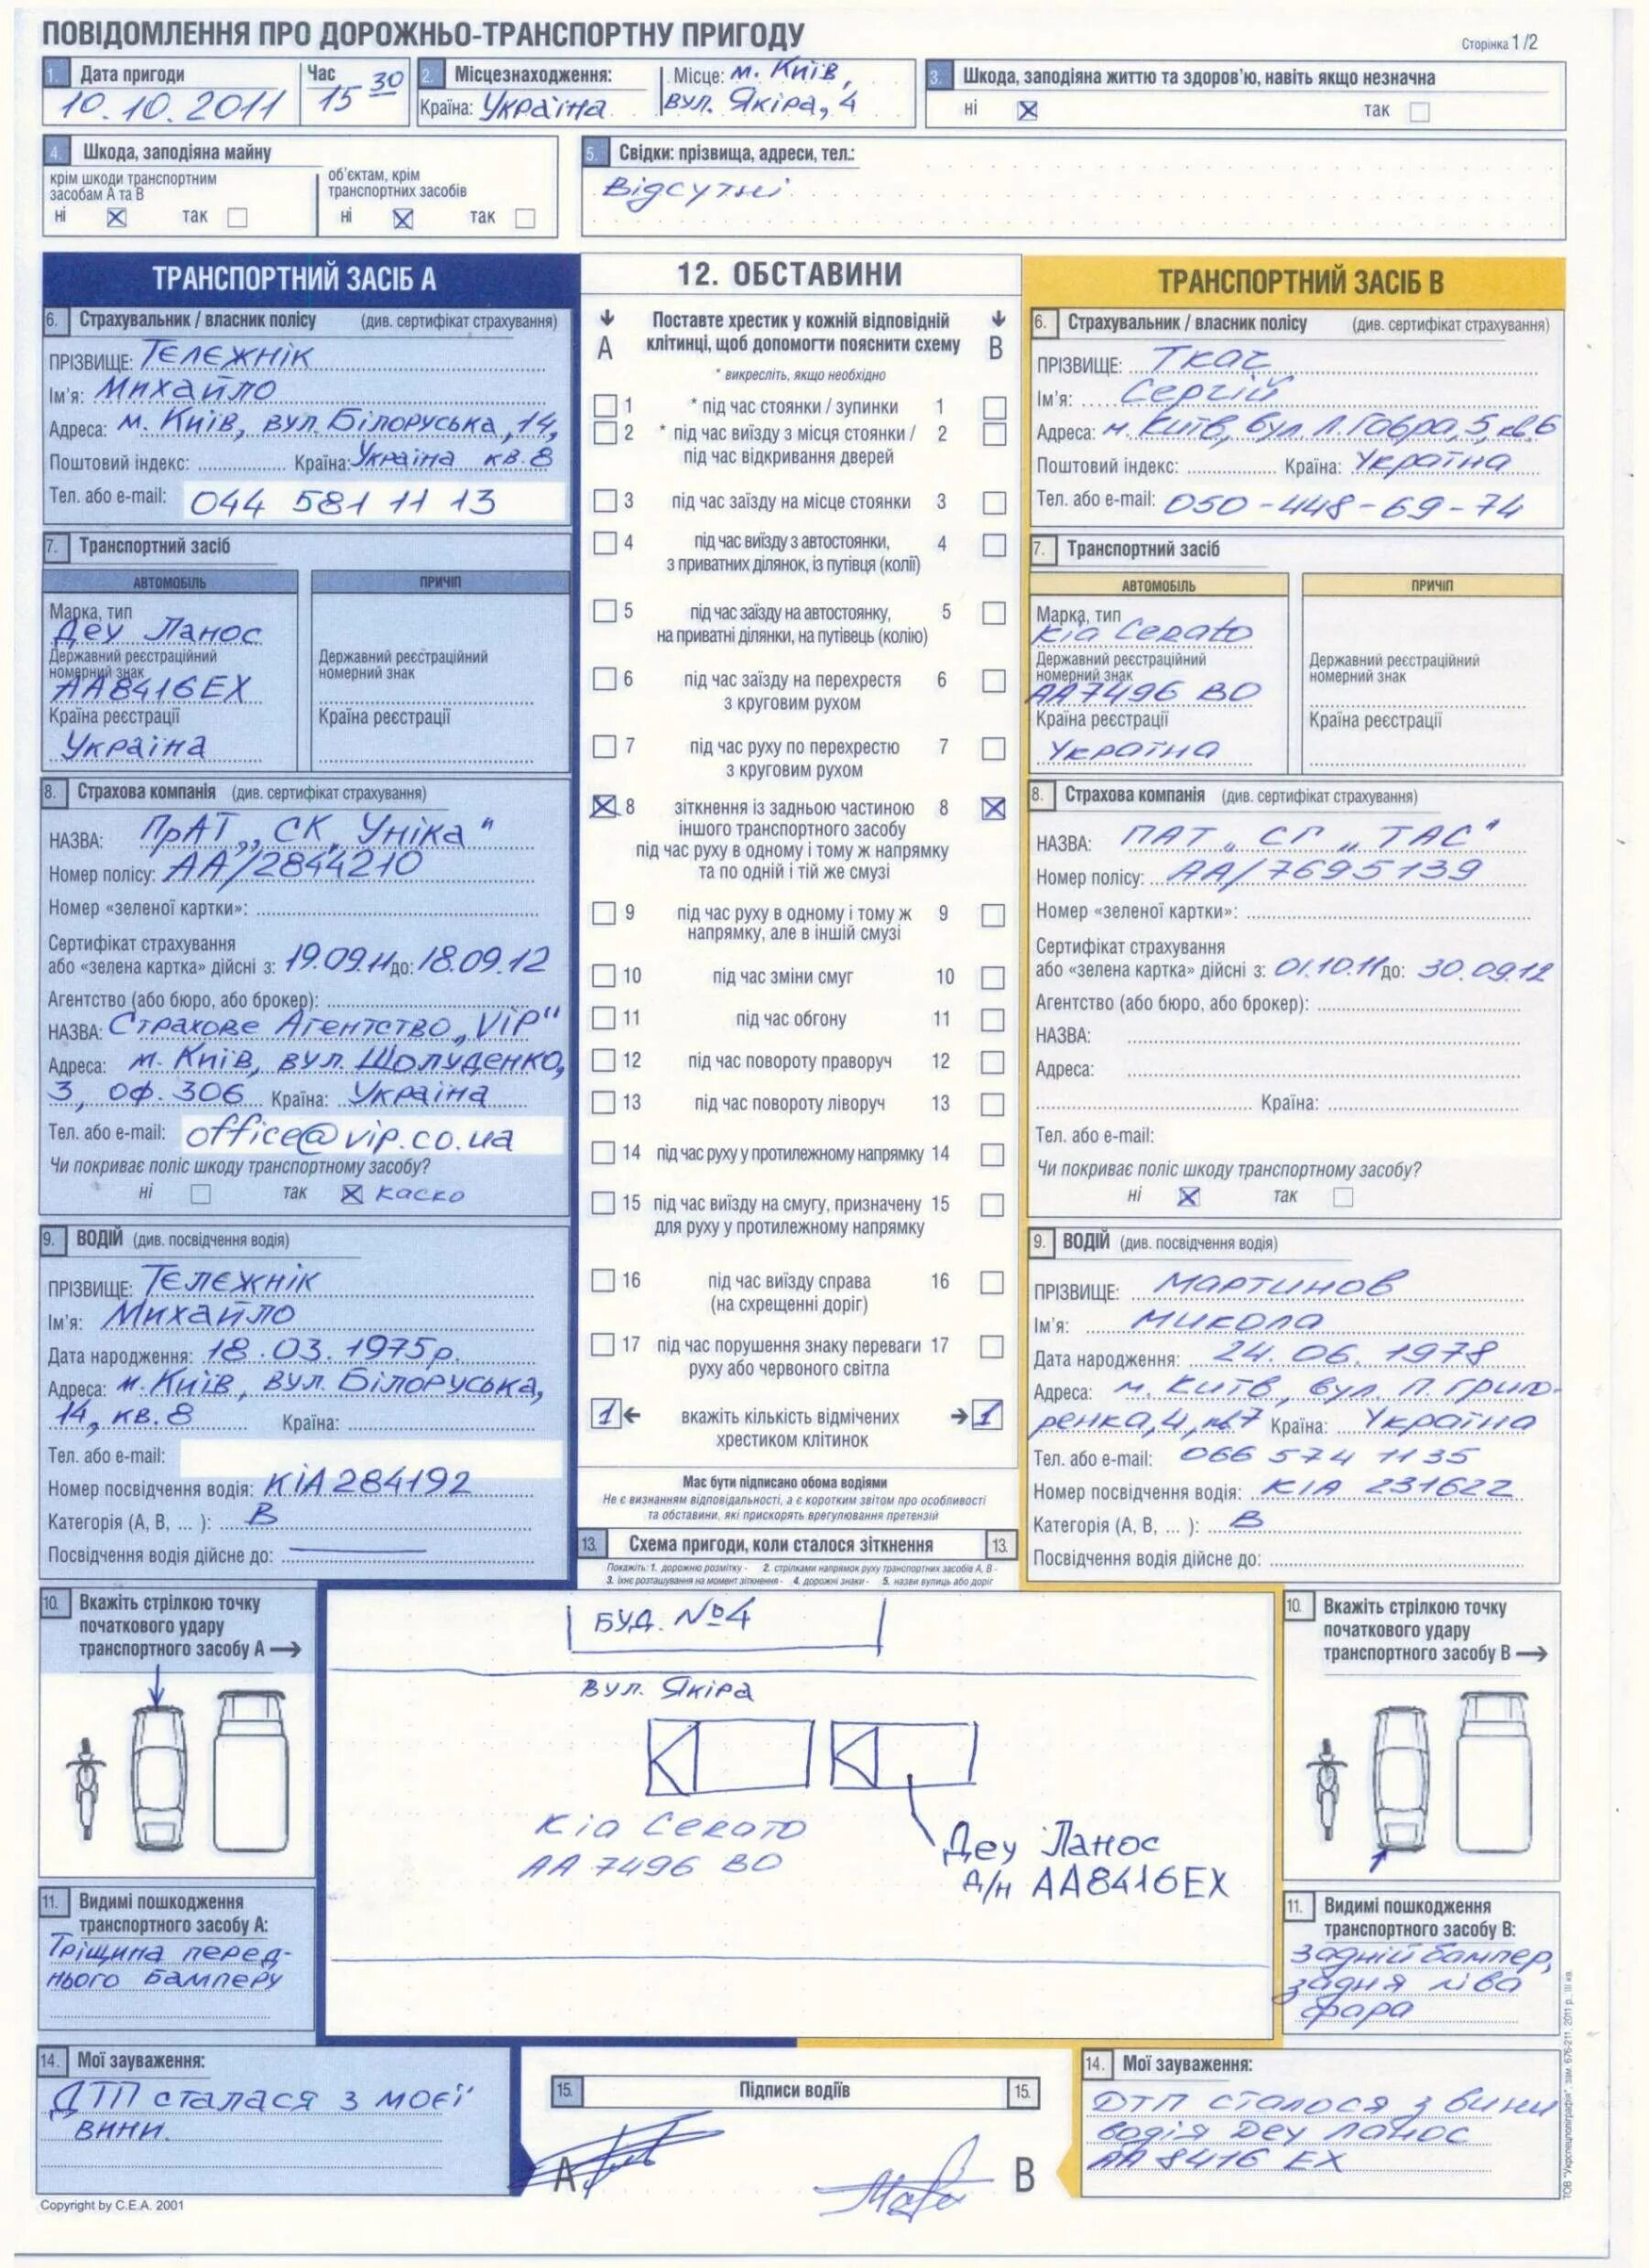 ПОВІДОМЛЕННЯ ПРО ДОРОЖНЬО-ТРАНСПОРТНУ ПРИГОДУ
Сторінка 1/2
1. Дата пригоди Час
10.10.2011 15 30
2. Місцезнаходження: Місце: м. Київ,
Країна: Україна вул. Якіра, 4
3. Шкода, заподіяна життю та здоров'ю, навіть якщо незначна
ні так
4. Шкода, заподіяна майну
крім шкоди транспортним
засобам А та В
ні так
об'єктам, крім
транспортних засобів
ні так
5. Свідки: прізвища, адреси, тел.:
Відсутні
ТРАНСПОРТНИЙ ЗАСІБ А
6. Страхувальник / власник полісу (див. сертифікат страхування)
ПРІЗВИЩЕ: Тєлєжнік
Ім'я: Михайло
Адреса: м. Київ, вул. Білоруська, 14,
Поштовий індекс: Країна: Україна кв. 8
Тел. або e-mail: 044 581 11 13
7. Транспортний засіб
АВТОМОБІЛЬ
Марка, тип
Деу Ланос
Державний реєстраційний
номерний знак
АА8416ЕХ
Країна реєстрації
Україна
ПРИЧІП
Державний реєстраційний
номерний знак
Країна реєстрації
8. Страхова компанія (див. сертифікат страхування)
НАЗВА: ПрАТ „СК „Уніка"
Номер полісу: АА/2844210
Номер «зеленої картки»:
Сертифікат страхування
або «зелена картка» дійсні з: 19.09.11 до: 18.09.12
Агентство (або бюро, або брокер):
НАЗВА: Страхове Агентство „ViP"
Адреса: м. Київ, вул. Шолуденко,
3, оф. 306 Країна: Україна
Тел. або e-mail: office@vip.co.ua
Чи покриває поліс шкоду транспортному засобу?
ні так каско
9. ВОДІЙ (див. посвідчення водія)
ПРІЗВИЩЕ: Тєлєжнік
Ім'я: Михайло
Дата народження: 18.03.1975р.
Адреса: м. Київ, вул. Білоруська,
14, кв. 8 Країна:
Тел. або e-mail:
Номер посвідчення водія: КІА 284192
Категорія (А, В, ... ): В
Посвідчення водія дійсне до:
12. ОБСТАВИНИ
А Поставте хрестик у кожній відповідній В
клітинці, щоб допомогти пояснити схему
* викресліть, якщо необхідно
1 * під час стоянки / зупинки 1
2 * під час виїзду з місця стоянки / 2
під час відкривання дверей
3 під час заїзду на місце стоянки 3
4 під час виїзду з автостоянки, 4
з приватних ділянок, із путівця (колії)
5 під час заїзду на автостоянку, 5
на приватні ділянки, на путівець (колію)
6 під час заїзду на перехрестя 6
з круговим рухом
7 під час руху по перехрестю 7
з круговим рухом
8 зіткнення із задньою частиною 8
іншого транспортного засобу
під час руху в одному і тому ж напрямку
та по одній і тій же смузі
9 під час руху в одному і тому ж 9
напрямку, але в іншій смузі
10 під час зміни смуг 10
11 під час обгону 11
12 під час повороту праворуч 12
13 під час повороту ліворуч 13
14 під час руху у протилежному напрямку 14
15 під час виїзду на смугу, призначену 15
для руху у протилежному напрямку
16 під час виїзду справа 16
(на схрещенні доріг)
17 під час порушення знаку переваги 17
руху або червоного світла
1 ← вкажіть кількість відмічених → 1
хрестиком клітинок
Має бути підписано обома водіями
Не є визнанням відповідальності, а є коротким звітом про особливості
та обставини, які прискорять врегулювання претензій
13. Схема пригоди, коли сталося зіткнення 13.
Покажіть: 1. дорожню розмітку - 2. стрілками напрямок руху транспортних засобів А, В -
3. їхнє розташування на момент зіткнення - 4. дорожні знаки - 5. назви вулиць або доріг
ТРАНСПОРТНИЙ ЗАСІБ В
6. Страхувальник / власник полісу (див. сертифікат страхування)
ПРІЗВИЩЕ: Ткач
Ім'я: Сергій
Адреса: м. Київ, бул. Л. Гавра, 5, кв. 6
Поштовий індекс: Країна: Україна
Тел. або e-mail: 050-448-69-74
7. Транспортний засіб
АВТОМОБІЛЬ
Марка, тип
Kia Cerato
Державний реєстраційний
номерний знак
АА7496 ВО
Країна реєстрації
Україна
ПРИЧІП
Державний реєстраційний
номерний знак
Країна реєстрації
8. Страхова компанія (див. сертифікат страхування)
НАЗВА: ПАТ „СГ „ТАС"
Номер полісу: АА/7695139
Номер «зеленої картки»:
Сертифікат страхування
або «зелена картка» дійсні з: 01.10.11 до: 30.09.12
Агентство (або бюро, або брокер):
НАЗВА:
Адреса:
Країна:
Тел. або e-mail:
Чи покриває поліс шкоду транспортному засобу?
ні так
9. ВОДІЙ (див. посвідчення водія)
ПРІЗВИЩЕ: Мартинов
Ім'я: Микола
Дата народження: 24.06.1978
Адреса: м. Київ, вул. П. Григо-
ренка, 4, кв. 7 Країна: Україна
Тел. або e-mail: 066 574 11 35
Номер посвідчення водія: КІА 231622
Категорія (А, В, ... ): В
Посвідчення водія дійсне до:
10. Вкажіть стрілкою точку
початкового удару
транспортного засобу А →
11. Видимі пошкодження
транспортного засобу А:
Тріщина перед-
нього бамперу
буд. №4
вул. Якіра
Kia Cerato
АА 7496 ВО
Деу Ланос
д/н АА8416ЕХ
10. Вкажіть стрілкою точку
початкового удару
транспортного засобу В →
11. Видимі пошкодження
транспортного засобу В:
задній бампер,
задня ліва
фара
14. Мої зауваження:
ДТП сталася з моєї
вини.
15. Підписи водіїв 15.
А В
14. Мої зауваження:
ДТП сталося з вини
водія Деу Ланос
АА 8416 ЕХ
Copyright by C.E.A. 2001